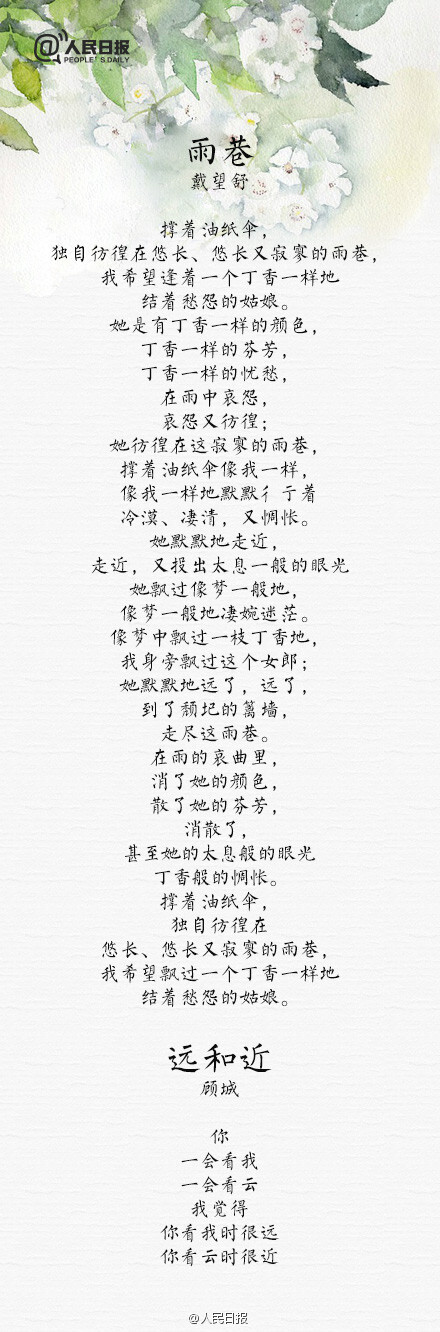 @人民日报
PEOPLE'S DAILY
雨巷
戴望舒
撑着油纸伞，
独自彷徨在悠长、悠长又寂寥的雨巷，
我希望逢着一个丁香一样地
结着愁怨的姑娘。
她是有丁香一样的颜色，
丁香一样的芬芳，
丁香一样的忧愁，
在雨中哀怨，
哀怨又彷徨；
她彷徨在这寂寥的雨巷，
撑着油纸伞像我一样，
像我一样地默默彳亍着
冷漠、凄清，又惆怅。
她默默地走近，
走近，又投出太息一般的眼光
她飘过像梦一般地，
像梦一般地凄婉迷茫。
像梦中飘过一枝丁香地，
我身旁飘过这个女郎；
她默默地远了，远了，
到了颓圮的篱墙，
走尽这雨巷。
在雨的哀曲里，
消了她的颜色，
散了她的芬芳，
消散了，
甚至她的太息般的眼光
丁香般的惆怅。
撑着油纸伞，
独自彷徨在
悠长、悠长又寂寥的雨巷，
我希望飘过一个丁香一样地
结着愁怨的姑娘。
远和近
顾城
你
一会看我
一会看云
我觉得
你看我时很远
你看云时很近
@人民日报